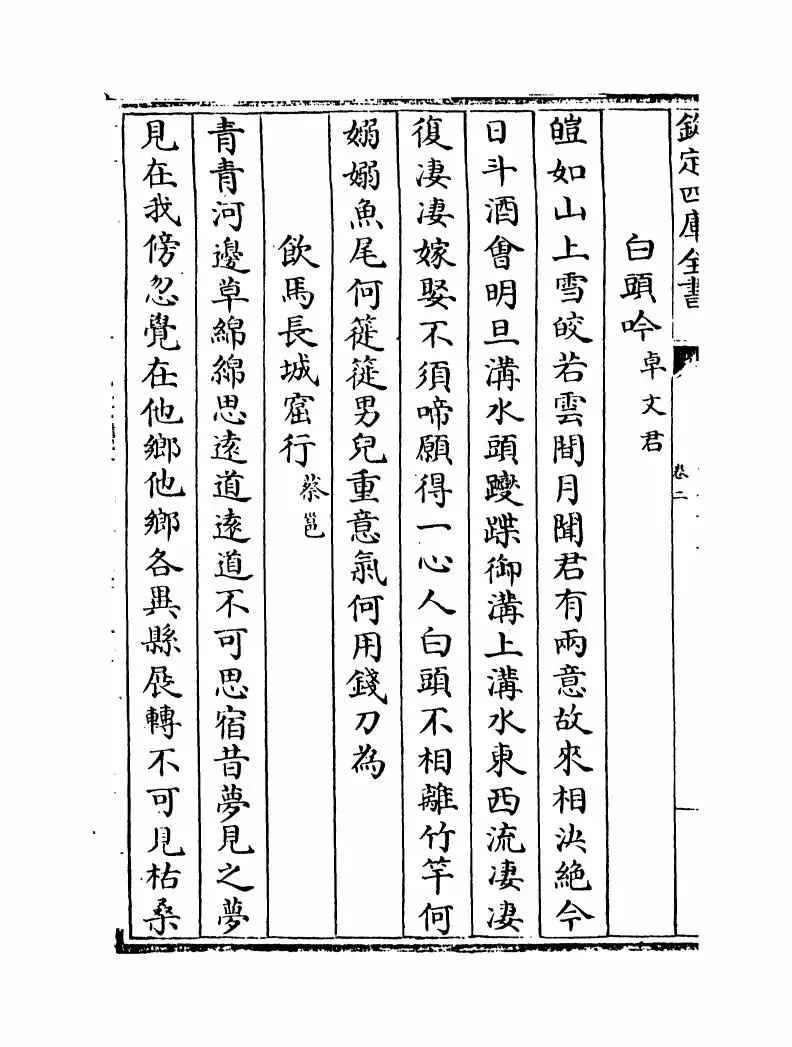 欽定四庫全書
卷二
白頭吟 卓文君
皚如山上雪皎若雲間月聞君有兩意故來相決絶今
日斗酒㑹明旦溝水頭躞蹀御溝上溝水東西流凄凄
復凄凄嫁娶不須啼願得一心人白頭不相離竹竿何
嫋嫋魚尾何簁簁男兒重意氣何用錢刀為
飲馬長城窟行 蔡邕
青青河邊草綿綿思遠道遠道不可思宿昔夢見之夢
見在我傍忽覺在他鄉他鄉各異縣展轉不可見枯桑